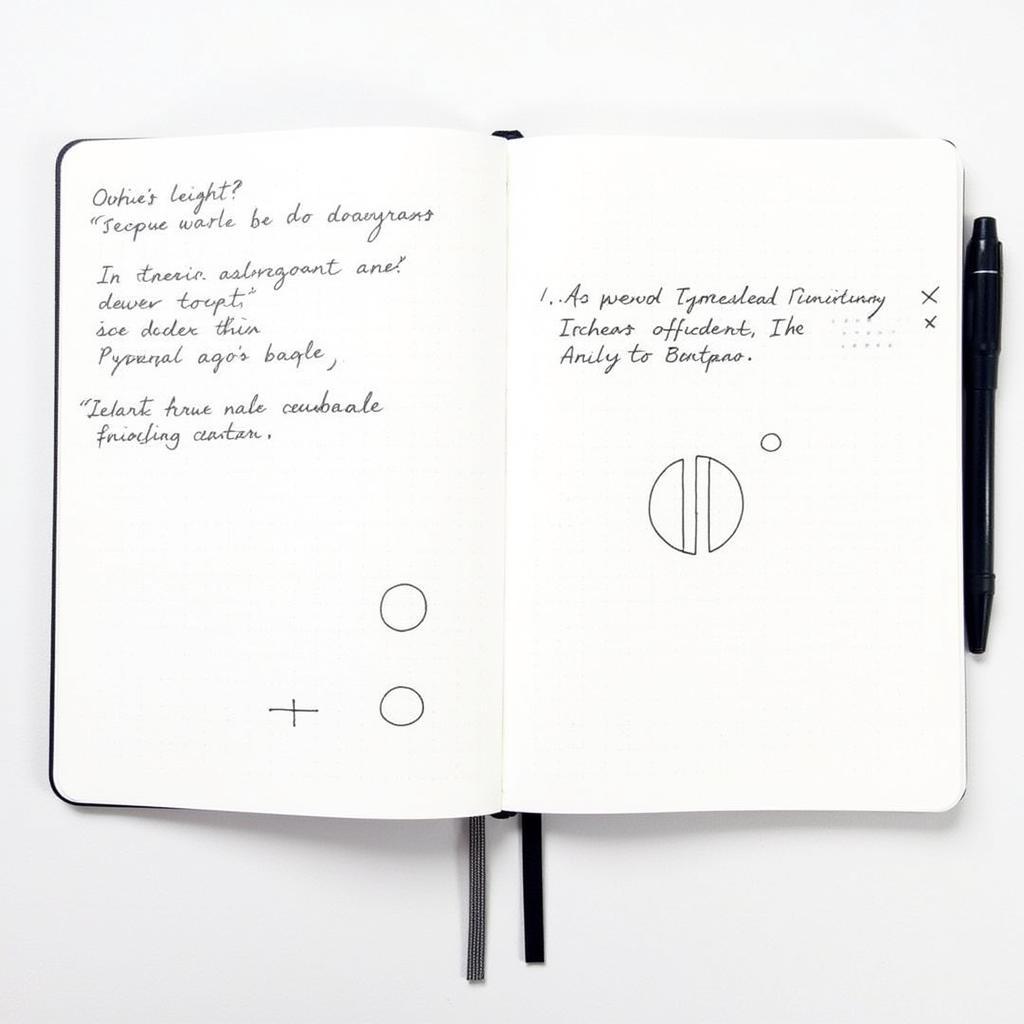 Ovhie's leight?
"Jecpue warle be do doacygrass
In tneric. aslorgoant ane?
dewer toupt,"
sce doder thin
Pyparqal ago's bagle,
"Ielark frue nale ceubaale
fniocling cantan.
1.. As pewod Tymeslead
Ircheas offucdent, Ihe
Anily to Bentpno.